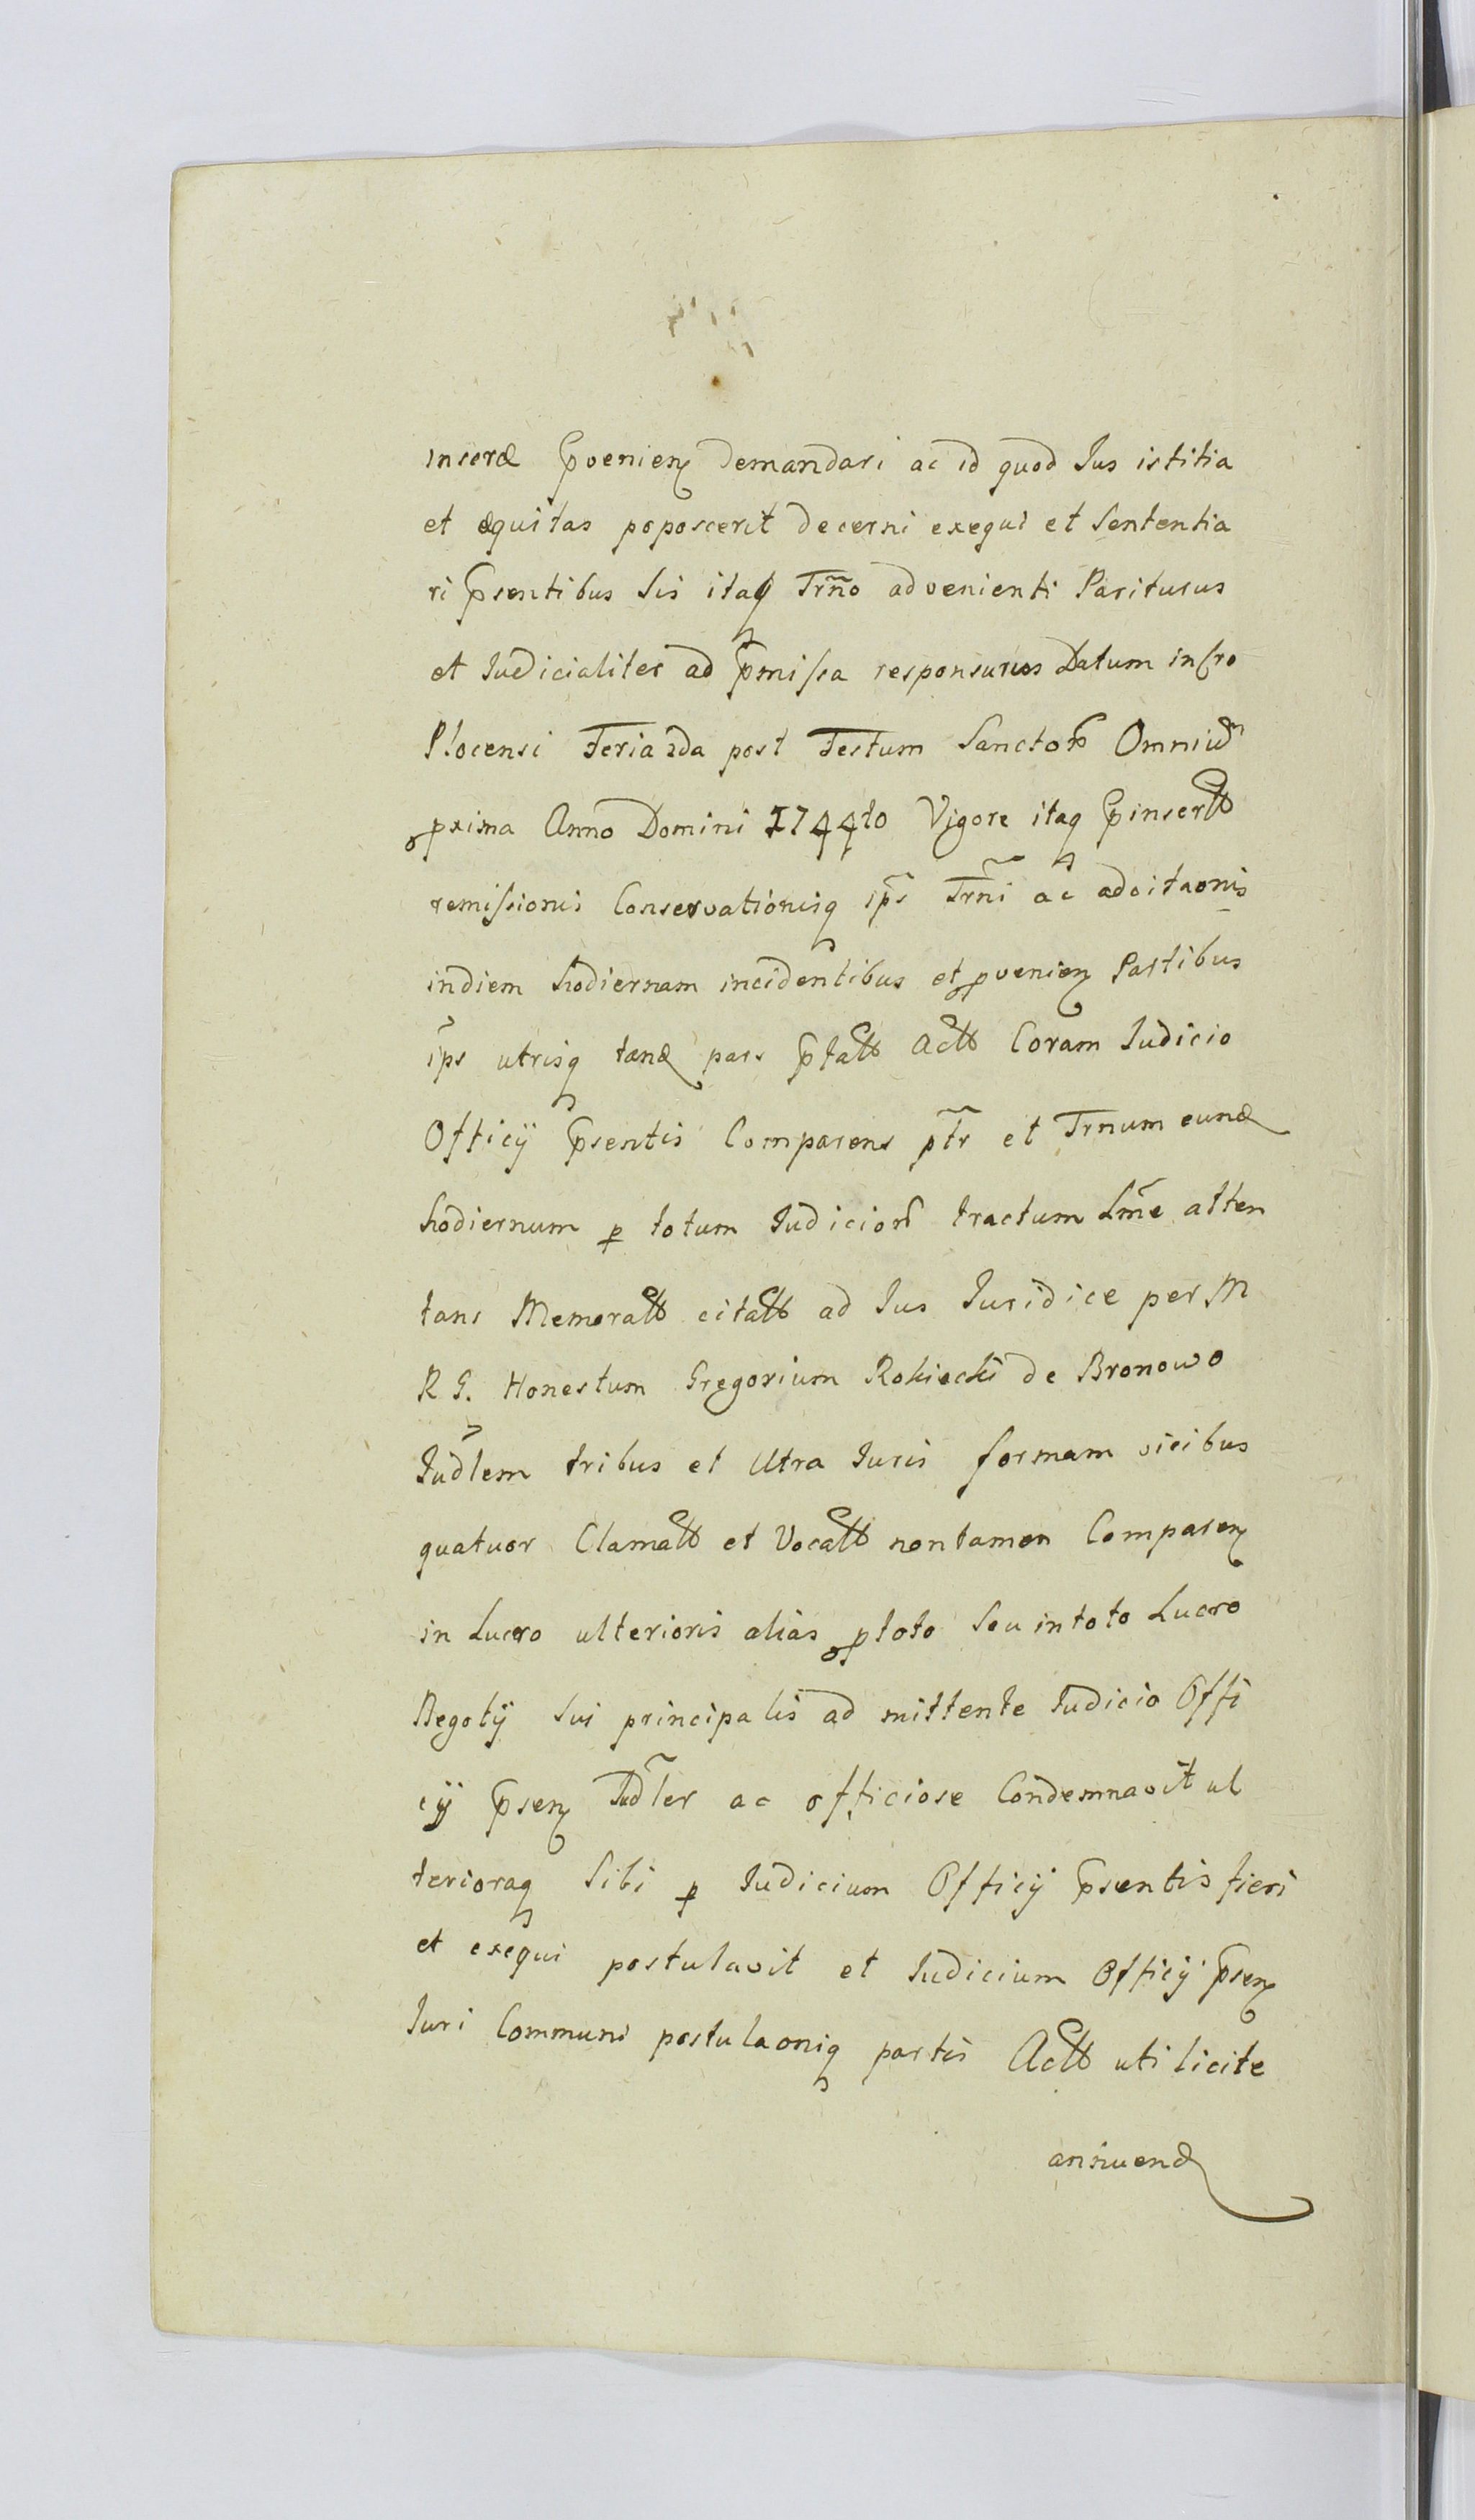 inseræ pvenien demandari ac id quod Jus istitia
et æquitas poposcerit decerni exequi et Sententia
ri psentibus Sis itaq Trño advenienti Pariturus
et Judicialiter ad pmissa responsurus Datum in Cro
Plocensi Feria 2da post Festum Sanctoꝝ Omniũ
pxima Anno Domini 1744to Vigore itaq pinsertt
remissionis Conservationisq ips Trñi ac adcitaonis
indiem hodiernam incidentibus et pvenien Partibus
ips utrisq tand pars ptatt Actt Coram Judicio
Officÿ psentis Comparens ptr et Trnum eund
hodiernum p totum Judicioꝝ tractum Lme atten
tans Memoratt citatt ad Jus Juridice per M
R G. Honestum Gregorium Rokicki de Bronowo
Judlem tribus et Utra Juris formam vicibus
quatuor Clamatt et Vocatt nontamen Comparen
in Lucro ulterioris alias ptoto Seu intoto Lucro
Negotÿ Sui principalis ad mittente Judicio Offi
cÿ psen Judler ac officiose Condemnavit ul
terioraq Sibi p Judicium Officÿ psentis fieri
et exequi postulavit et Judicium Officÿ psen
Juri Communi postulaoniq partis Actt uti licite
annuend